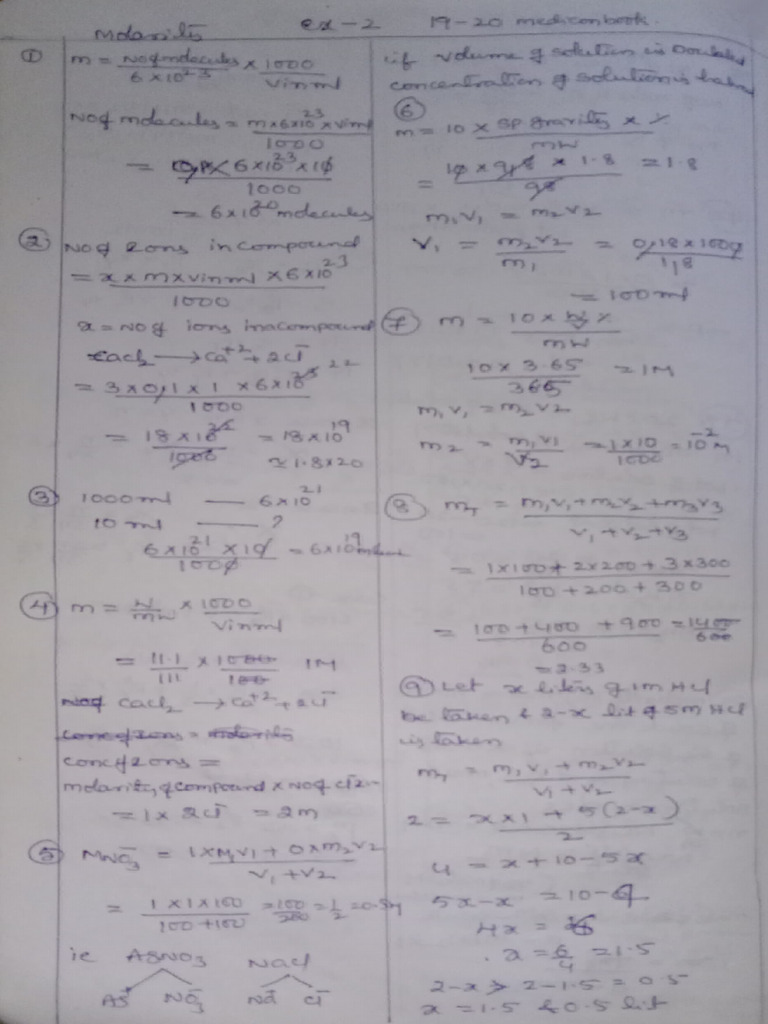 Molarity ex-2 19-20 medicon book.
① m = No of molecules / 6×10^23 × 1000 / V in ml
No of molecules = m×6×10^23 × V in ml / 1000
= 0.1 × 6×10^23 × 10 / 1000
= 6×10^20 molecules
② No of Ions in compound
= x × m × V in ml × 6×10^23 / 1000
x = No of ions in a compound
CaCl2 → Ca^+2 + 2Cl^-
= 3 × 0.1 × 1 × 6×10^23 / 1000
= 18×10^22 / 1000 = 18×10^19
≈ 1.8×20
③ 1000 ml — 6×10^21
10 ml — ?
6×10^21 × 10 / 1000 = 6×10^19
④ m = W / mw × 1000 / V in ml
= 11.1 / 111 × 1000 / 100 1M
CaCl2 → Ca^+2 + 2Cl^-
Conc of Ions =
molarity of compound × No of
= 1 × 2Cl^- = 2m
⑤ MNO3^- = 1×M1V1 + 0×m2V2 / V1+V2
= 1×1×100 / 100+100 = 100/200 = 1/2 = 0.5M
ie AgNO3 NaCl
Ag^+ NO3^- Na^+ Cl^-
if volume of solution is Doubled
concentration of solution is
⑥
m = 10 × sp gravity × % / mw
= 10 × 98 × 1.8 / 98 = 1.8
m1V1 = m2V2
V1 = m2V2 / m1 = 0.18×1000 / 1.8
= 100 ml
⑦ m = 10 × % / mw
10 × 3.65 / 36.5 = 1M
m1V1 = m2V2
m2 = m1V1 / V2 = 1×10 / 1000 = 10^-2 M
⑧ mT = m1V1 + m2V2 + m3V3 / V1+V2+V3
= 1×100 + 2×200 + 3×300 / 100+200+300
= 100+400+900 / 600 = 1400 / 600
= 2.33
⑨ Let x liters of 1m HCl
be taken & 2-x lit of 5m HCl
is taken
mT = m1V1 + m2V2 / V1+V2
2 = x×1 + 5(2-x) / 2
4 = x + 10 - 5x
5x - x = 10 - 4
4x = 6
x = 6/4 = 1.5
2-x ⇒ 2-1.5 = 0.5
x = 1.5 & 0.5 lit